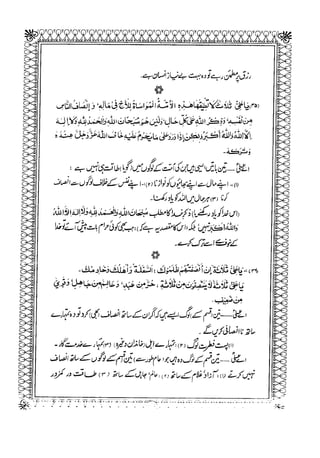 رزق پر مطمئن رہے تو وہ بہت بے نیاز انسان ہے۔
۳۵۔ يَا عَلِيُّ ثَلَاثٌ لَا تُطِيْقُهَا هٰذِهِ الْأُمَّةُ الْمُوَاسَاةُ لِلْأَخِ فِيْ مَالِهٖ وَ اِنْصَافُ النَّاسِ
مِنْ نَفْسِهٖ وَ ذِكْرُ اللّٰهِ عَلٰى كُلِّ حَالٍ وَلَيْسَ هُوَ سُبْحَانَ اللّٰهِ وَالْحَمْدُ لِلّٰهِ وَلَا اِلٰهَ
اِلَّا اللّٰهُ وَاللّٰهُ اَكْبَرُ وَلٰكِنْ اِذَا وَرَدَ عَلٰى مَا يَحْرُمُ عَلَيْهِ خَافَ اللّٰهَ عَزَّ وَجَلَّ عِنْدَهُ وَ
تَرَكَهُ۔
اے علیؑ ..... تین باتیں ایسی ہیں جن کی اُمت کے لوگوں میں (گویا) طاقت ہی نہیں ہے۔
(۱)۔ اپنے مال سے اپنے بھائیوں کو نوازنا (۲)۔ اپنے نفس کے خلاف لوگوں سے انصاف
کرنا (۳) ہر حال میں اللہ کو یاد رکھنا۔
(اس خدا کو یاد رکھنے) ذکر خدا کا مطلب سُبْحَانَ اللّٰهِ وَالْحَمْدُ لِلّٰهِ وَلَا اِلٰهَ اِلَّا اللّٰهُ
وَاللّٰهُ اَكْبَرُ نہیں بلکہ اس کا مقصد یہ ہے کہ) جب بھی کوئی حرام بات پیش آئے تو خدا
کے خوف اسے ترک کرے۔
۳۶۔ يَا عَلِيُّ ثَلَاثَةٌ اِنْ اَنْصَفْتَهُمْ ظَلَمُوْكَ: السَّفِلَةُ وَ اَهْلُكَ وَ خَادِمُكَ۔
يَا عَلِيُّ ثَلَاثَةٌ لَا يَنْتَصِفُوْنَ مِنْ ثَلَاثَةٍ، حُرٌّ مِنْ عَبْدٍ وَ عَالِمٌ مِنْ جَاهِلٍ وَ قَوِيٌّ
مِنْ ضَعِيْفٍ۔
اے علیؑ ..... تین قسم کے لوگ ایسے ہیں کہ اگر ان کے ساتھ انصاف بھی کرو تو وہ تمہارے
ساتھ نا انصافی کریں گے۔
(۱) پست فطرت لوگ (۲) تمہارے اہل (خاندان وغیرہ) (۳) تمہارے خدمت گار۔
اے علیؑ ..... تین قسم کے لوگ وہ ہیں جو (عام طور سے) تین قسم کے لوگوں کے ساتھ انصاف
نہیں کرتے (۱) آزاد غلام کے ساتھ (۲) عالم جاہل کے ساتھ (۳) طاقت ور کمزور